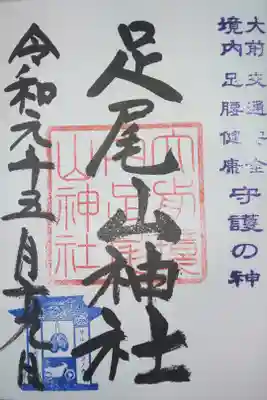 大前 交通安全
境内 足腰健康 守護の神
足尾山神社
大前境
内足尾
山神社
令和元年五月十九日